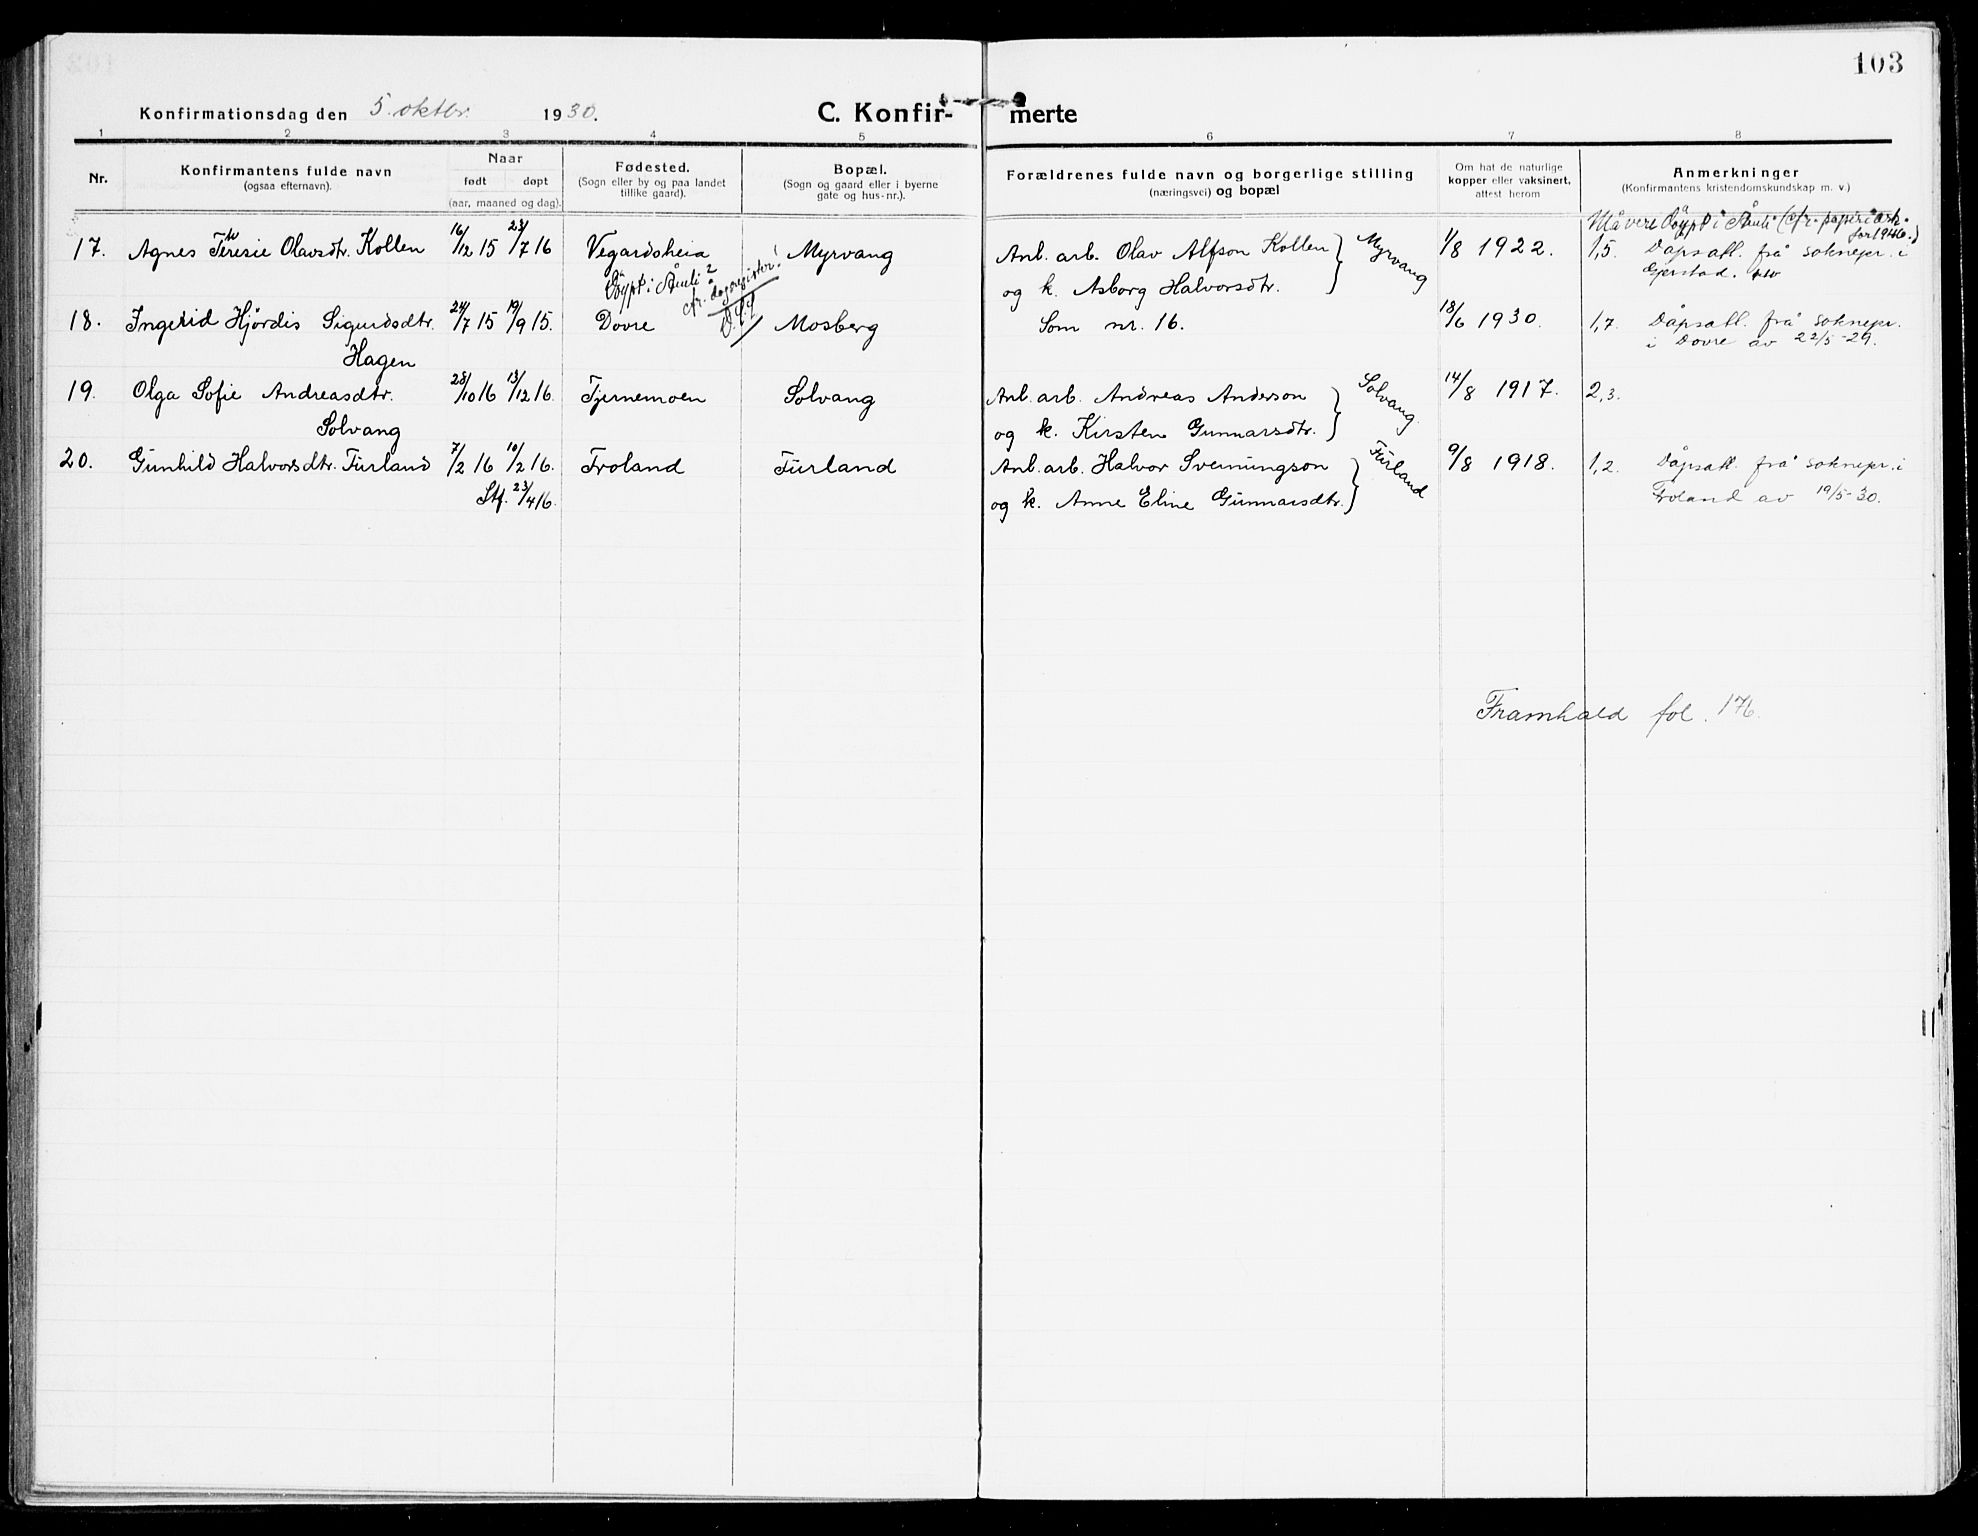 103
Konfirmationsdag den 5. oktbr. 1930.
C. Konfir- merte
1 2 3 4 5 6 7 8
Nr.
Konfirmantens fulde navn
(ogsaa efternavn).
Naar
født døpt
(aar, maaned og dag).
Fødested.
(Sogn eller by og paa landet
tillike gaard).
Bopæl.
(Sogn og gaard eller i byerne
gate og hus-nr.).
Forældrenes fulde navn og borgerlige stilling
(næringsvei) og bopæl
Om hat de naturlige
kopper eller vaksinert,
attest herom
Anmerkninger
(Konfirmantens kristendomskundskap m. v.)
Må vere döypt i Åmli (cfr. papir i ark.
for 1946.)
17. Agnes Teresie Olavsdtr. Kollen 16/12 15 23/7 16 Vegardsheia Myrvang Anb. arb. Olav Alfson Kollen } Myrvang 1/8 1922. 1,5. Dåpsatt. frå soknepr. i
Döypt i Åmli og k. Asborg Halvorsdtr. Gjerstad.
cfr. dagsregister!
18. Ingerid Hjördis Sigurdsdtr. 24/7 15 19/9 15. Dovre Mosberg Som nr. 16. 18/6 1930. 1,7. Dåpsatt. frå soknepr.
Hagen i Dovre av 22/5-29.
19. Olga Sofie Andreasdtr. 28/10 16 13/12 16. Tjernemoen Solvang Anb. arb. Andreas Anderson } Solvang. 14/8 1917. 2,3.
Solvang og k. Kirsten Gunnarsdtr.
20. Gunhild Halvorsdtr. Furland 7/2 16 10/2 16. Froland Furland Anb. arb. Halvor Sverningson } Furland 9/8 1918. 1,2. Dåpsatt. frå soknepr. i
Stf. 23/4 16. og k. Anne Eline Gunnarsdtr. Froland av 19/5-30.
Framhald fol. 176.